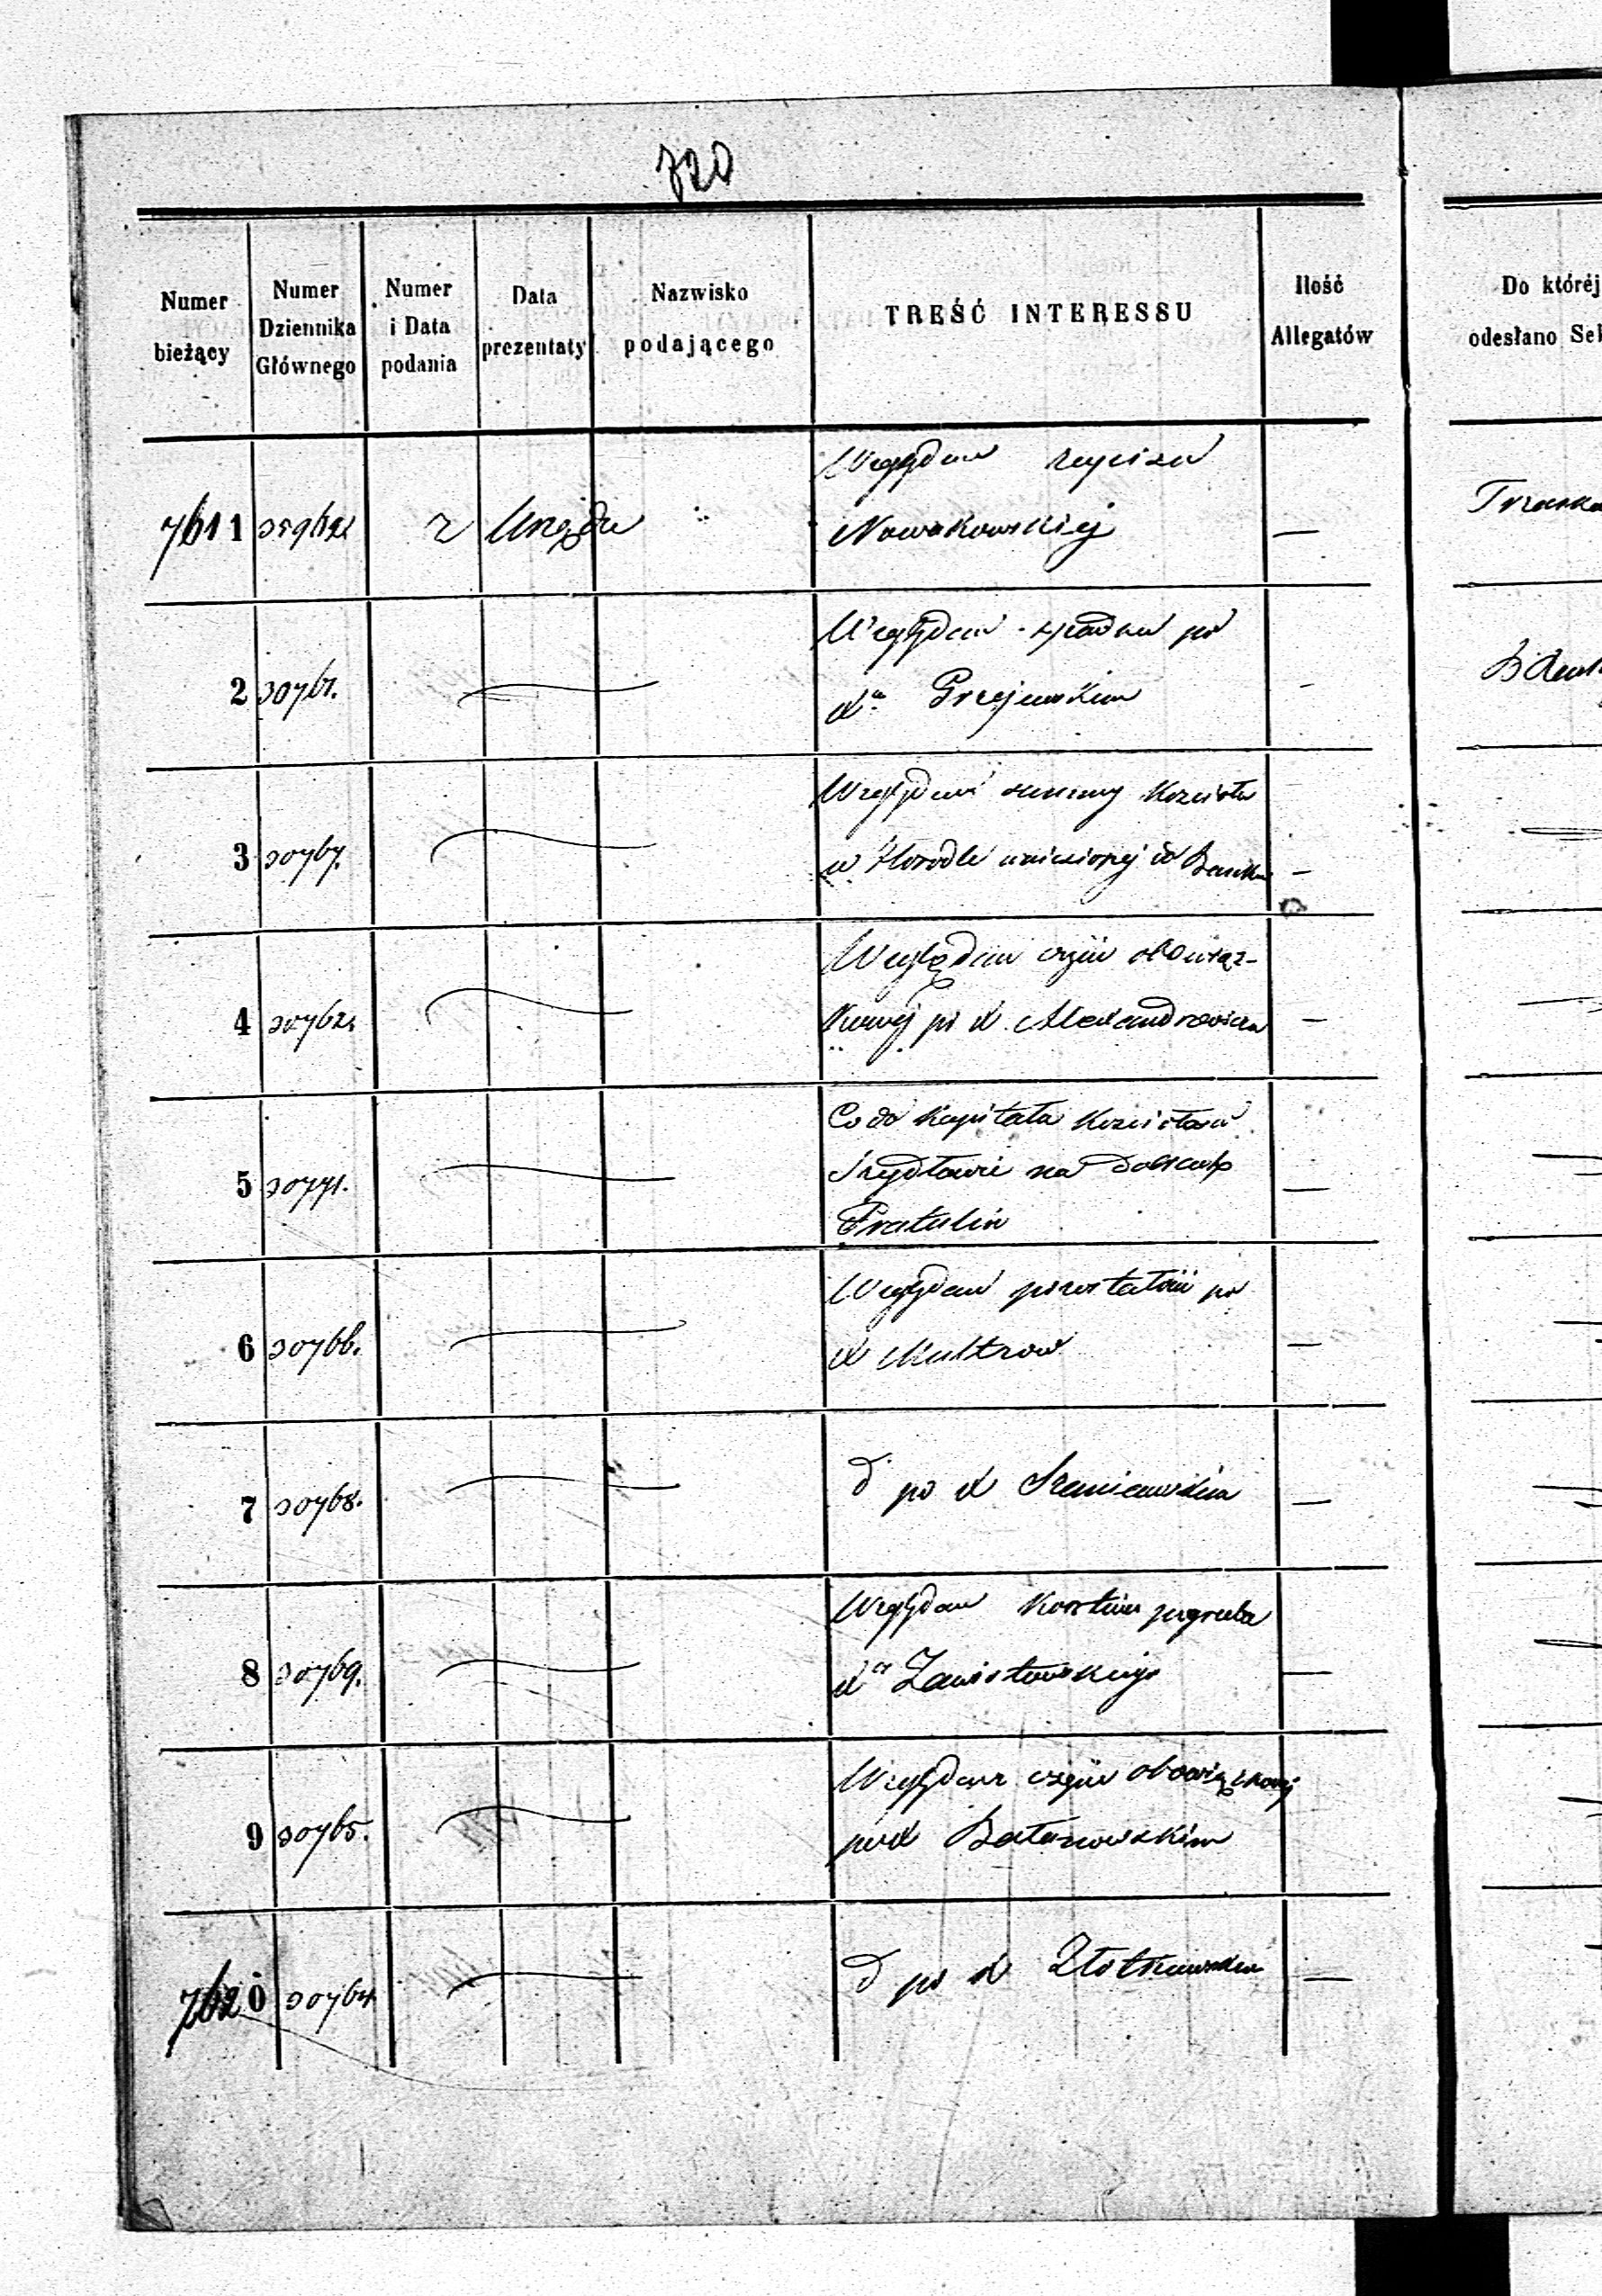 720
Numer bieżący
Numer Dziennika Głównego
Numer i Data podania
Data prezentaty
Nazwisko podającego
TREŚĆ INTERESSU
Ilość Allegatów
Do któréj
odesłano Se
7611 z Urzędu Względem
Nowakowskiej —
2 30761. Względem spadku po
Xu Grzejewskim
3 30767. Względem summy Kościoła
w Horodle wniesionej do Banku —
4 30762. Względem części obowiąz-
kowej po X. Alexandrowiczu —
5 30771. Co do Kapitału Kościoła w
na dobrach —
Pratulin
6 30766. Względem pozostałości po
X —
7 30768. d po X Szaniawskim —
8 30769. Względem Kosztów pogrzebu
Xa Zawistowskiego —
9 30765. Względem części obowiązkowej
po X
7620 30764 d po X —